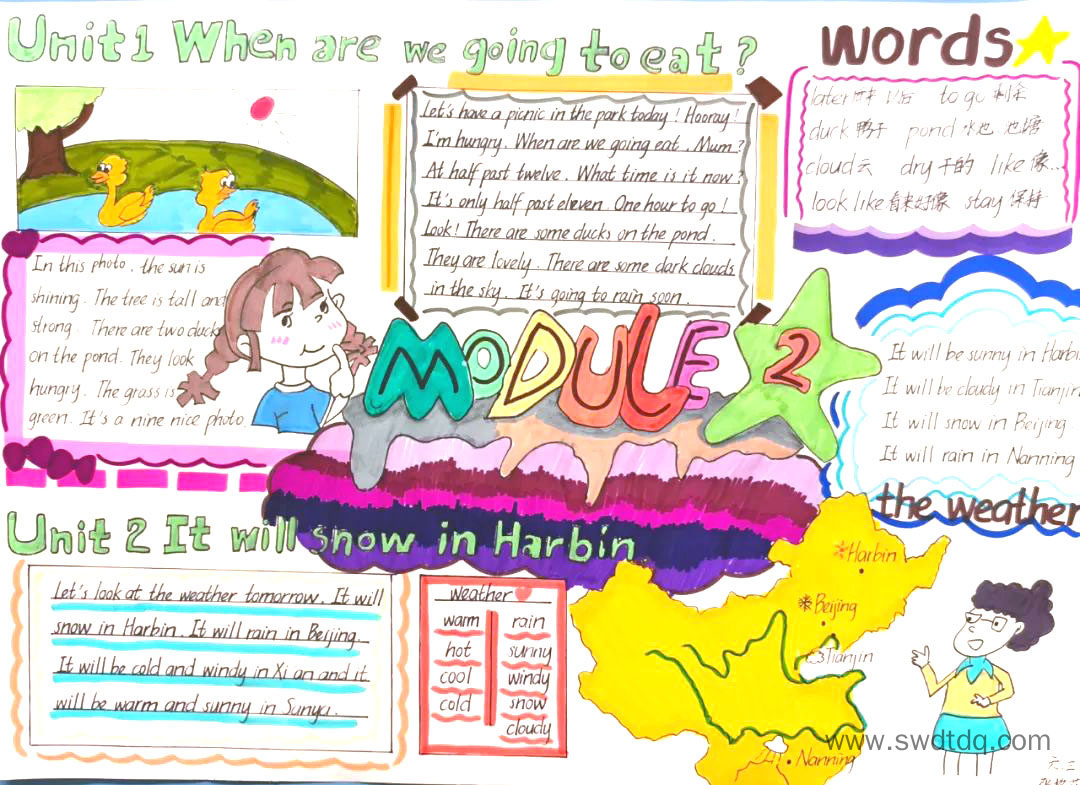 Unit 1 When are we going to eat?
words
Let's have a picnic in the park today! Hooray!
I'm hungry. When are we going eat, Mum?
At half past twelve. What time is it now?
It's only half past eleven. One hour to go!
Look! There are some ducks on the pond.
They are lovely. There are some dark clouds
in the sky. It's going to rain soon.
later 以后 to go 剩余
duck 鸭子 pond 池塘
cloud 云 dry 干的 like 像...
look like 看来好像 stay 保持
In this photo, the sun is
shining. The tree is tall and
strong. There are two duck
on the pond. They look
hungry. The grass is
green. It's a nine nice photo.
MODULE 2
It will be sunny in Harbi
It will be cloudy in Tianjin
It will snow in Beijing
It will rain in Nanning
the weather
Unit 2 It will snow in Harbin
Let's look at the weather tomorrow. It will
snow in Harbin. It will rain in Beijing
It will be cold and windy in Xi an and it
will be warm and sunny in Sanya.
weather
warm rain
hot sunny
cool windy
cold snow
cloudy
Harbin
Beijing
Tianjin
Nanning
www.swdtdq.com
六.二